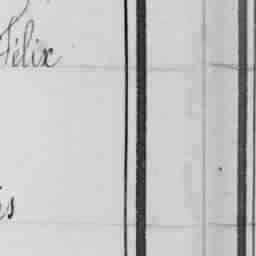 Félix